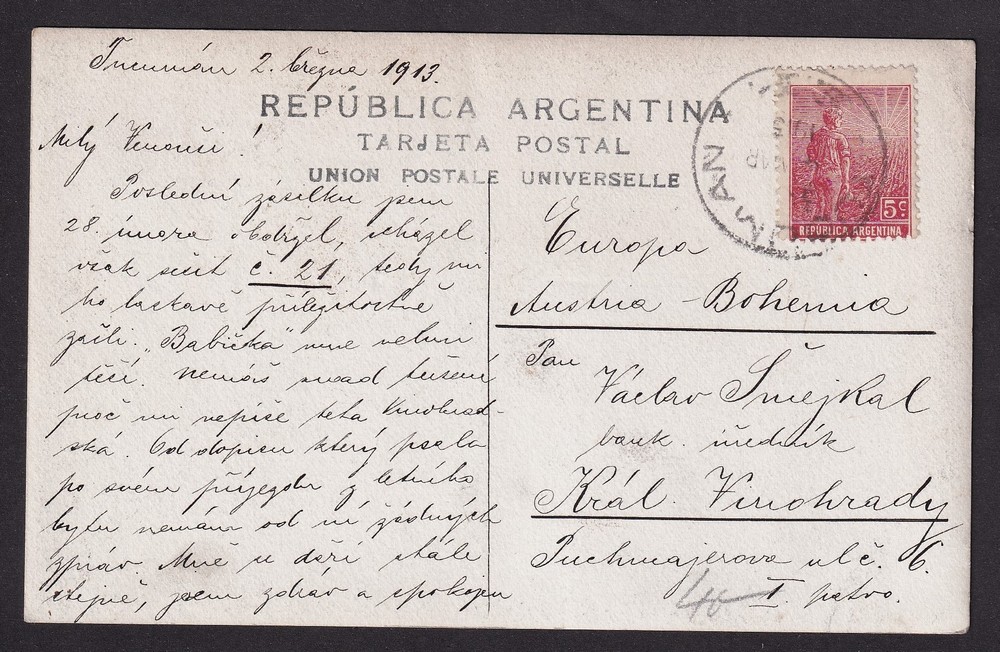 Tucumán 2. března 1913.
REPÚBLICA ARGENTINA
TARJETA POSTAL
UNION POSTALE UNIVERSELLE
Milý Venouši!
Poslední zásilku jsem
28. února obdržel, scházel
však sešit č. 21, tedy mi
ho laskavě příležitostně
zašli. „Babička" mne velmi
těší. Nemáš snad tušení
proč mi nepíše teta Vinohrad-
ská. Od dopisu který psala
po svém příjezdu z letního
bytu nemám od ní žádných
zpráv. Mně se daří stále
stejně, jsem zdráv a spokojen
5c
REPÚBLICA ARGENTINA
Europa
Austria - Bohemia
Pan
Václav Šmejkal
bank. úředník
Král. Vinohrady
Puchmajerova ul č. 6.
I. patro.
40